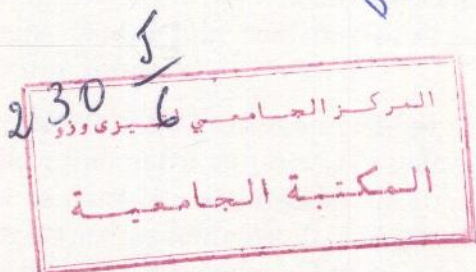 230 5/6
المركز الجامعي لتيزي وزو
المكتبة الجامعية